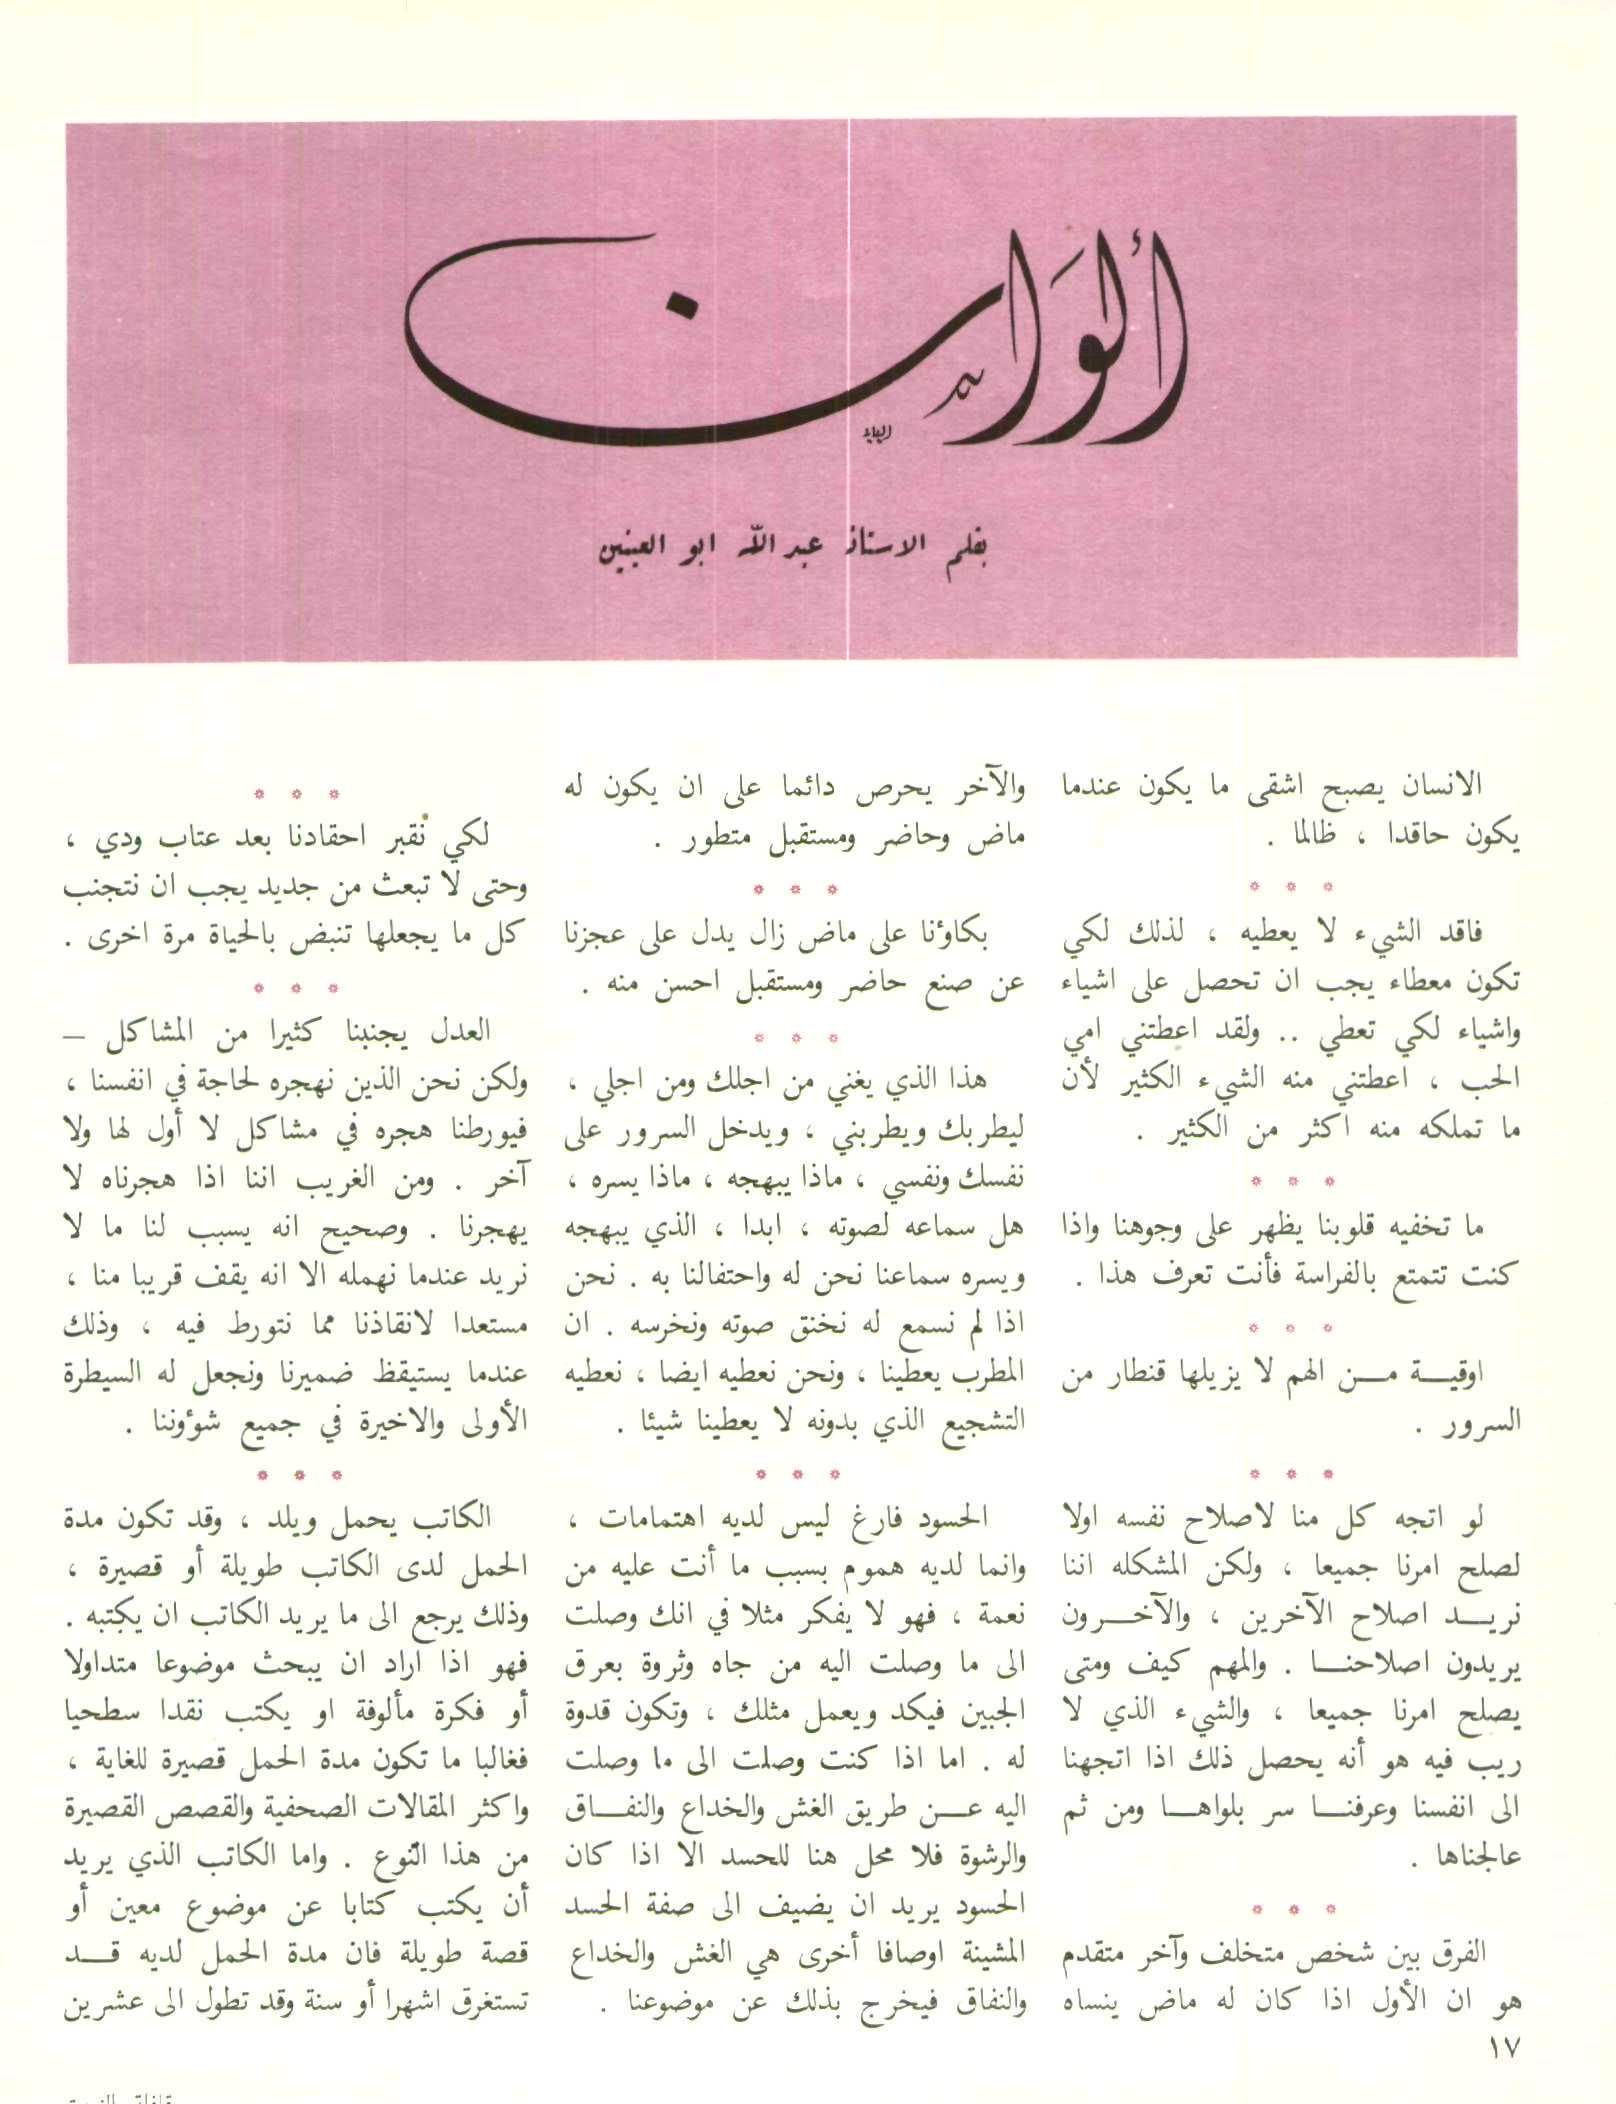 ألوَان
بقلم الاستاذ عبد الله ابو العينين
الانسان يصبح اشقى ما يكون عندما
يكون حاقدا ، ظالما .
* * *
فاقد الشيء لا يعطيه ، لذلك لكي
تكون معطاء يجب ان تحصل على اشياء
واشياء لكي تعطي .. ولقد اعطتني امي
الحب ، اعطتني منه الشيء الكثير لأن
ما تملكه منه اكثر من الكثير .
* * *
ما تخفيه قلوبنا يظهر على وجوهنا واذا
كنت تتمتع بالفراسة فأنت تعرف هذا .
* * *
اوقيـــة مـــن الهم لا يزيلها قنطار من
السرور .
* * *
لو اتجه كل منا لاصلاح نفسه اولا
لصلح امرنا جميعا ، ولكن المشكله اننا
نريـــد اصلاح الآخرين ، والآخـــرون
يريدون اصلاحنـــا . والمهم كيف ومتى
يصلح امرنا جميعا ، والشيء الذي لا
ريب فيه هو أنه يحصل ذلك اذا اتجهنا
الى انفسنا وعرفنـــا سر بلواهـــا ومن ثم
عالجناها .
* * *
الفرق بين شخص متخلف وآخر متقدم
هو ان الأول اذا كان له ماض ينساه
والآخر يحرص دائما على ان يكون له
ماض وحاضر ومستقبل متطور .
* * *
بكاؤنا على ماض زال يدل على عجزنا
عن صنع حاضر ومستقبل احسن منه .
* * *
هذا الذي يغني من اجلك ومن اجلي ،
ليطربك ويطربني ، ويدخل السرور على
نفسك ونفسي ، ماذا يبهجه ، ماذا يسره ،
هل سماعه لصوته ، ابدا ، الذي يبهجه
ويسره سماعنا نحن له واحتفالنا به . نحن
اذا لم نسمع له نخنق صوته ونخرسه . ان
المطرب يعطينا ، ونحن نعطيه ايضا ، نعطيه
التشجيع الذي بدونه لا يعطينا شيئا .
* * *
الحسود فارغ ليس لديه اهتمامات ،
وانما لديه هموم بسبب ما أنت عليه من
نعمة ، فهو لا يفكر مثلا في انك وصلت
الى ما وصلت اليه من جاه وثروة بعرق
الجبين فيكد ويعمل مثلك ، وتكون قدوة
له . اما اذا كنت وصلت الى ما وصلت
اليه عـــن طريق الغش والخداع والنفـــاق
والرشوة فلا محل هنا للحسد الا اذا كان
الحسود يريد ان يضيف الى صفة الحسد
المشينة اوصافا أخرى هي الغش والخداع
والنفاق فيخرج بذلك عن موضوعنا .
* * *
لكي نقبر احقادنا بعد عتاب ودي ،
وحتى لا تبعث من جديد يجب ان نتجنب
كل ما يجعلها تنبض بالحياة مرة اخرى .
* * *
العدل يجنبنا كثيرا من المشاكل —
ولكن نحن الذين نهجره لحاجة في انفسنا ،
فيورطنا هجره في مشاكل لا أول لها ولا
آخر . ومن الغريب اننا اذا هجرناه لا
يهجرنا . وصحيح انه يسبب لنا ما لا
نريد عندما نهمله الا انه يقف قريبا منا ،
مستعدا لانقاذنا مما نتورط فيه ، وذلك
عندما يستيقظ ضميرنا ونجعل له السيطرة
الأولى والاخيرة في جميع شؤوننا .
* * *
الكاتب يحمل ويلد ، وقد تكون مدة
الحمل لدى الكاتب طويلة أو قصيرة ،
وذلك يرجع الى ما يريد الكاتب ان يكتبه .
فهو اذا اراد ان يبحث موضوعا متداولا
أو فكرة مألوفة او يكتب نقدا سطحيا
فغالبا ما تكون مدة الحمل قصيرة للغاية ،
واكثر المقالات الصحفية والقصص القصيرة
من هذا النّوع . واما الكاتب الذي يريد
أن يكتب كتابا عن موضوع معين أو
قصة طويلة فان مدة الحمل لديه قـــد
تستغرق اشهرا أو سنة وقد تطول الى عشرين
١٧